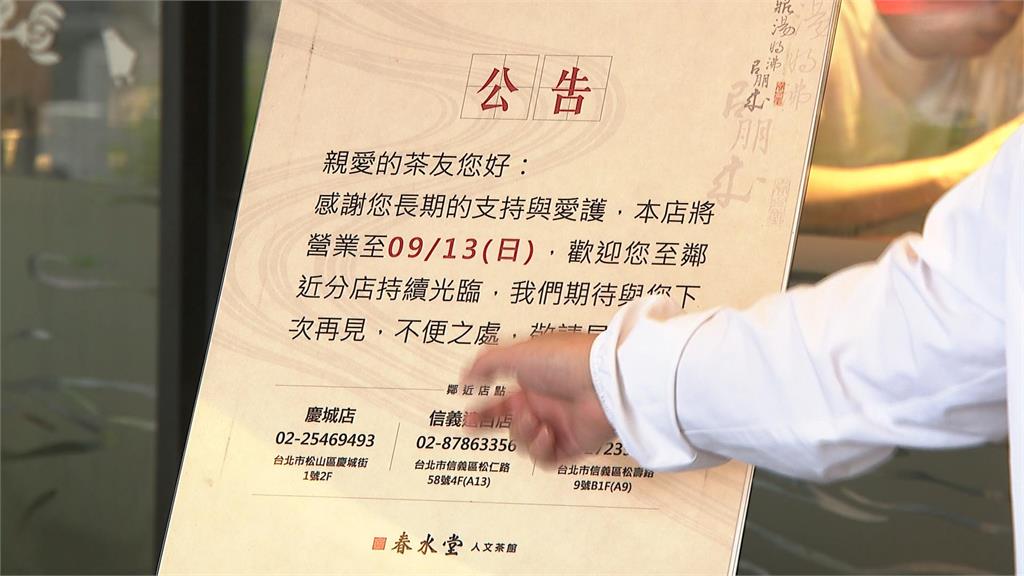 公告
親愛的茶友您好：
感謝您長期的支持與愛護，本店將
營業至09/13(日)，歡迎您至鄰
近分店持續光臨，我們期待與您下
次再見，不便之處，敬請
鄰近店點
慶城店
02-25469493
台北市松山區慶城街
1號2F
信義遠百店
02-87863356
台北市信義區松仁路
58號4F(A13)
台北市信義區松壽路
9號B1F(A9)
春水堂 人文茶館